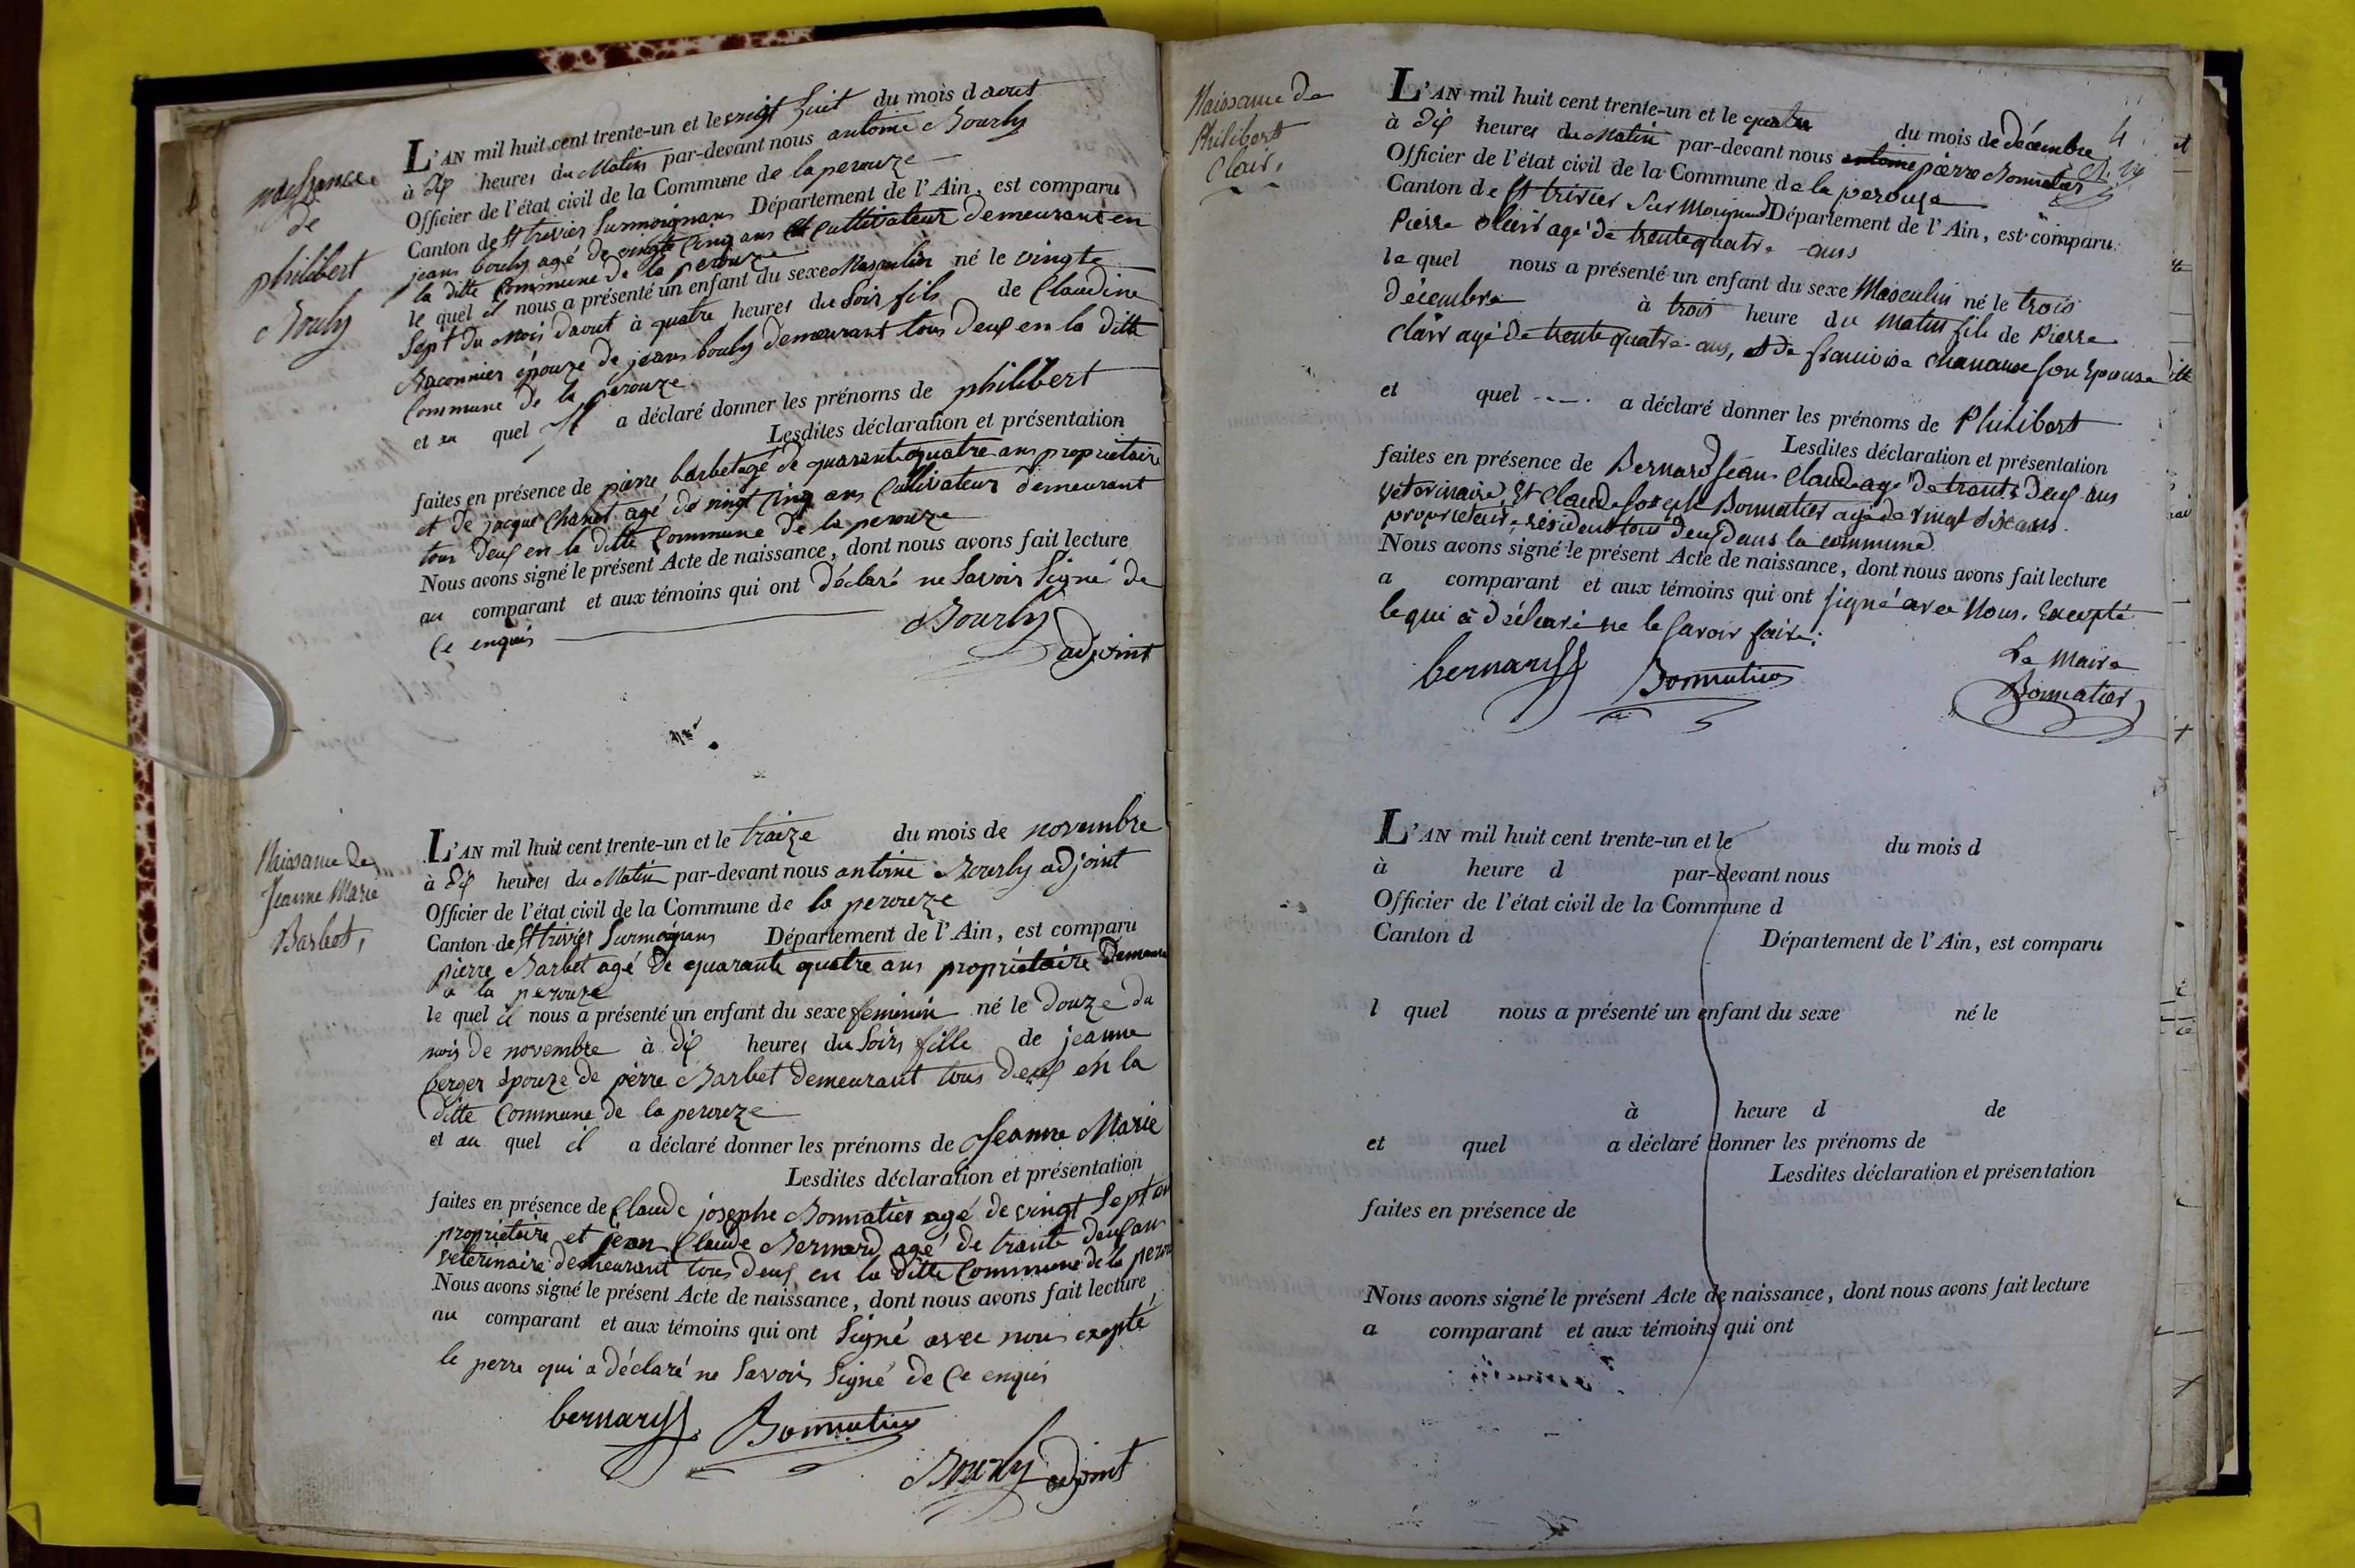 naissance
de
philibert
Bouly
L'AN mil huit cent trente-un et le vingt huit du mois d aout
à dix heures du Matin par-devant nous antoine Bourly
Officier de l'état civil de la Commune de la perouze
Canton de St trivier Surmoignans Département de l'Ain, est comparu
jean bouly agé de vingte cinq ans cultivateur demeurant en
la ditte Commune de la perouze
le quel il nous a présenté un enfant du sexe Masculin né le vingte
Sept du mois daout à quatre heures du Soir fils de Claudine
épouze de jean bouly demeurant tous deux en la ditte
Commune de la perouze
et au quel il a déclaré donner les prénoms de philibert
Lesdites déclaration et présentation
faites en présence de pierre barbet agé de quarente quatre ans propriétaire
et de jacque Chanet agé de vingt cinq ans Cultivateur demeurant
tous deux en la ditte Commune de la perouze
Nous avons signé le présent Acte de naissance, dont nous avons fait lecture
au comparant et aux témoins qui ont déclaré ne Savoir Signé de
Ce enquis
Bourly
adjoint
Naissance de
Jeanne Marie
Barbet,
L'AN mil huit cent trente-un et le traize du mois de novembre
à dix heures du Matin par-devant nous antoine Bourly adjoint
Officier de l'état civil de la Commune de la perouze
Canton de St trivier Surmoignans Département de l'Ain, est comparu
pierre Barbet agé de quarante quatre ans propriétaire
a la perouze
le quel il nous a présenté un enfant du sexe feminin né le douze du
mois de novembre à dix heures du Soir fille de jeanne
berger épouze de pierre Barbet demeurant tous deux en la
ditte Commune de la perouze
et au quel il a déclaré donner les prénoms de Jeanne Marie
Lesdites déclaration et présentation
faites en présence de Claude josephe Bonnatier agé de vingt Sept an
propriétaire et jean Claude Bernard agé de trante deux ans
veterinaire demeurant tous deux en la ditte Commune de la perou
Nous avons signé le présent Acte de naissance, dont nous avons fait lecture
au comparant et aux témoins qui ont Signé avec nous exepté
le perre qui a déclaré ne Savoir Signé de Ce enquis
bernard Bonnatier
Bourly adjoint
Naissance de
Philibert
Clair,
4
L'AN mil huit cent trente-un et le quatre du mois de décembre
à dix heures du Matin par-devant nous antoine pierre Bonnatier
Officier de l'état civil de la Commune de la perouse
Canton de St trivier Sur Moignand Département de l'Ain, est comparu
Pierre Clair agé de trente quatre ans
le quel nous a présenté un enfant du sexe Masculin né le trois
décembre à trois heure du matin fils de Pierre
Clair agé de trente quatre ans, et de francoise son Epouse
et quel a déclaré donner les prénoms de Philibert
Lesdites déclaration et présentation
faites en présence de Bernard Jean Claude agé de trante deux ans
veterinaire, Et Claude Joseph Bonnatier agé de vingt six ans
proprietair, résident tous deux dans la commune
Nous avons signé le présent Acte de naissance, dont nous avons fait lecture
a comparant et aux témoins qui ont signé avec Nous, Excepté
le qui à déclaré ne le savoir faire.
bernard Bonnatier
Le Maire
Bonnatier
L'AN mil huit cent trente-un et le du mois d
à heure d par-devant nous
Officier de l'état civil de la Commune d
Canton d Département de l'Ain, est comparu
l quel nous a présenté un enfant du sexe né le
à heure d de
et quel a déclaré donner les prénoms de
Lesdites déclaration et présentation
faites en présence de
Nous avons signé le présent Acte de naissance, dont nous avons fait lecture
a comparant et aux témoins qui ont